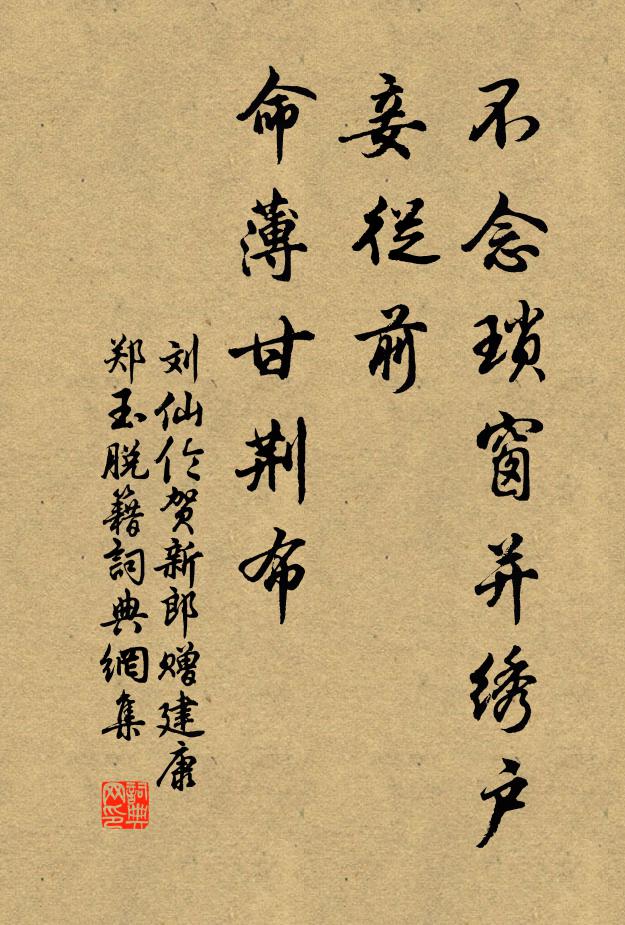 不念瑣窗并绣户
妾從前
命薄甘荆布
刘仙伦贺新郎赠建康
郑玉脱籍詞典網集
詞典
网印